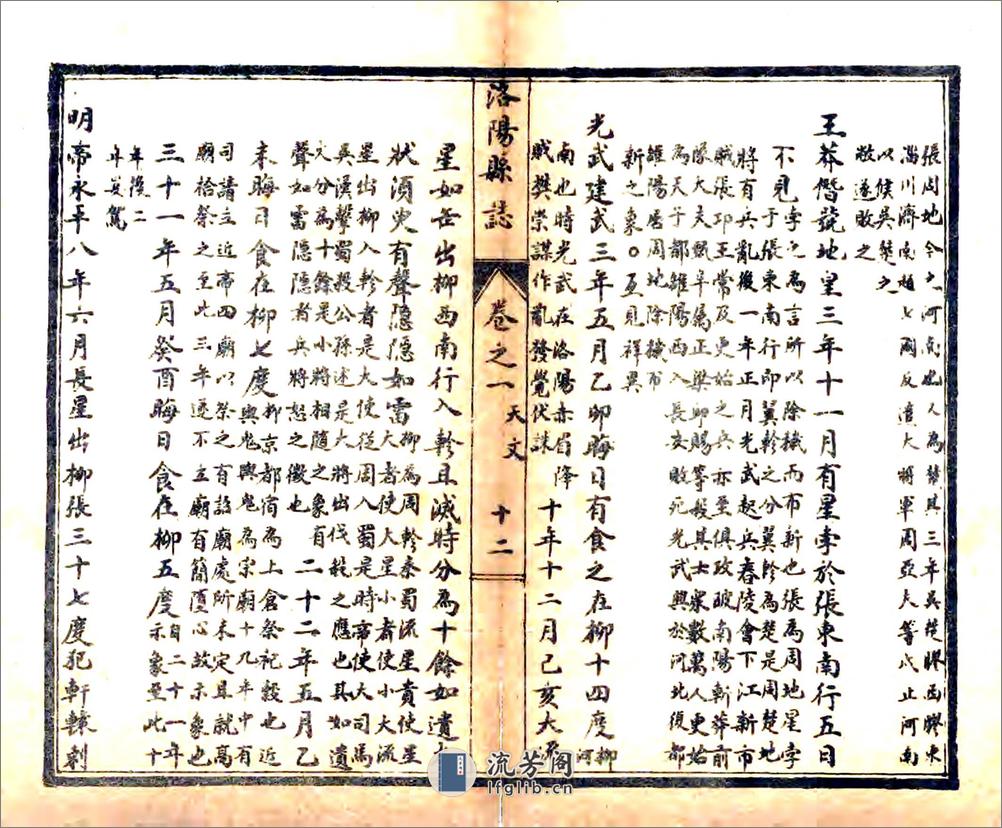 張周地今之河南也人為楚其三年吳楚膠西膠東
淄川濟南趙七國反遣大將軍周亞夫等戍止河南
以候吳楚之
敝遂敗之
王莽僭號地皇三年十一月有星孛於張東南行五日
不見孛之為言所以除穢而布新也張為周地星孛
于張東南行即翼軫之分翼軫為楚是周楚地
將有兵亂後一年正月光武起兵舂陵會下江新市
賊張卬王常及更始之兵亦至俱攻破南陽斬莽前
隊大夫甄阜屬正梁邱賜等殺其士衆數萬人更始
為天子都雒陽西入長安敗死光武興於河北復都
雒陽居周地除穢布
新之象○互見祥異
光武建武三年五月乙卯晦日有食之在柳十四度柳
河
南也時光武在洛陽赤眉降
賊樊崇謀作亂發覺伏誅
十年十二月己亥大流
洛陽縣誌
卷之一
天文
十二
星如缶出柳西南行入軫且滅時分為十餘如遺火
狀須臾有聲隱隱如雷柳為周軫秦蜀流星貴使星
大者使大星小者使小大流
星出柳入軫者是大使從周入蜀是時帝使大司馬
吳漢擊蜀殺公孫述是大將出伐能之應也其如遺
火分為十餘是小將相隨之象有
聲如雷隱隱者兵將怒之徵也
二十二年五月乙
未晦日食在柳七度柳京都宿為上倉祭祀穀也近
輿鬼輿鬼為宗廟十九年中有
司請立近帝四廟以祭之有詔廟處所未定且就高
廟祫祭之至此三年遂不立廟有簡墮心故示象也
三十一年五月癸酉晦日食在柳五度自二十一年
示象至此十
年後二
年宴駕
明帝永平八年六月長星出柳張三十七度犯軒轅刺
流芳阁
lfglib.cn